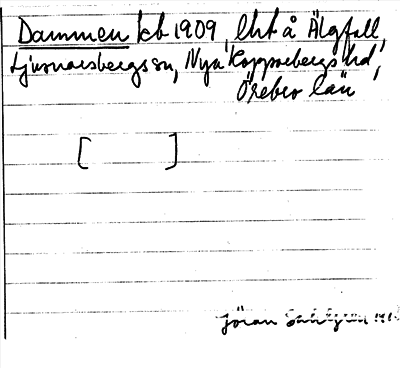 Dammen kb 1909, lht å Älgfall,
Ljusnarsbergs sn, Nya Kopparbergs hd,
Örebro län
[ ]
Jöran Sahlgren